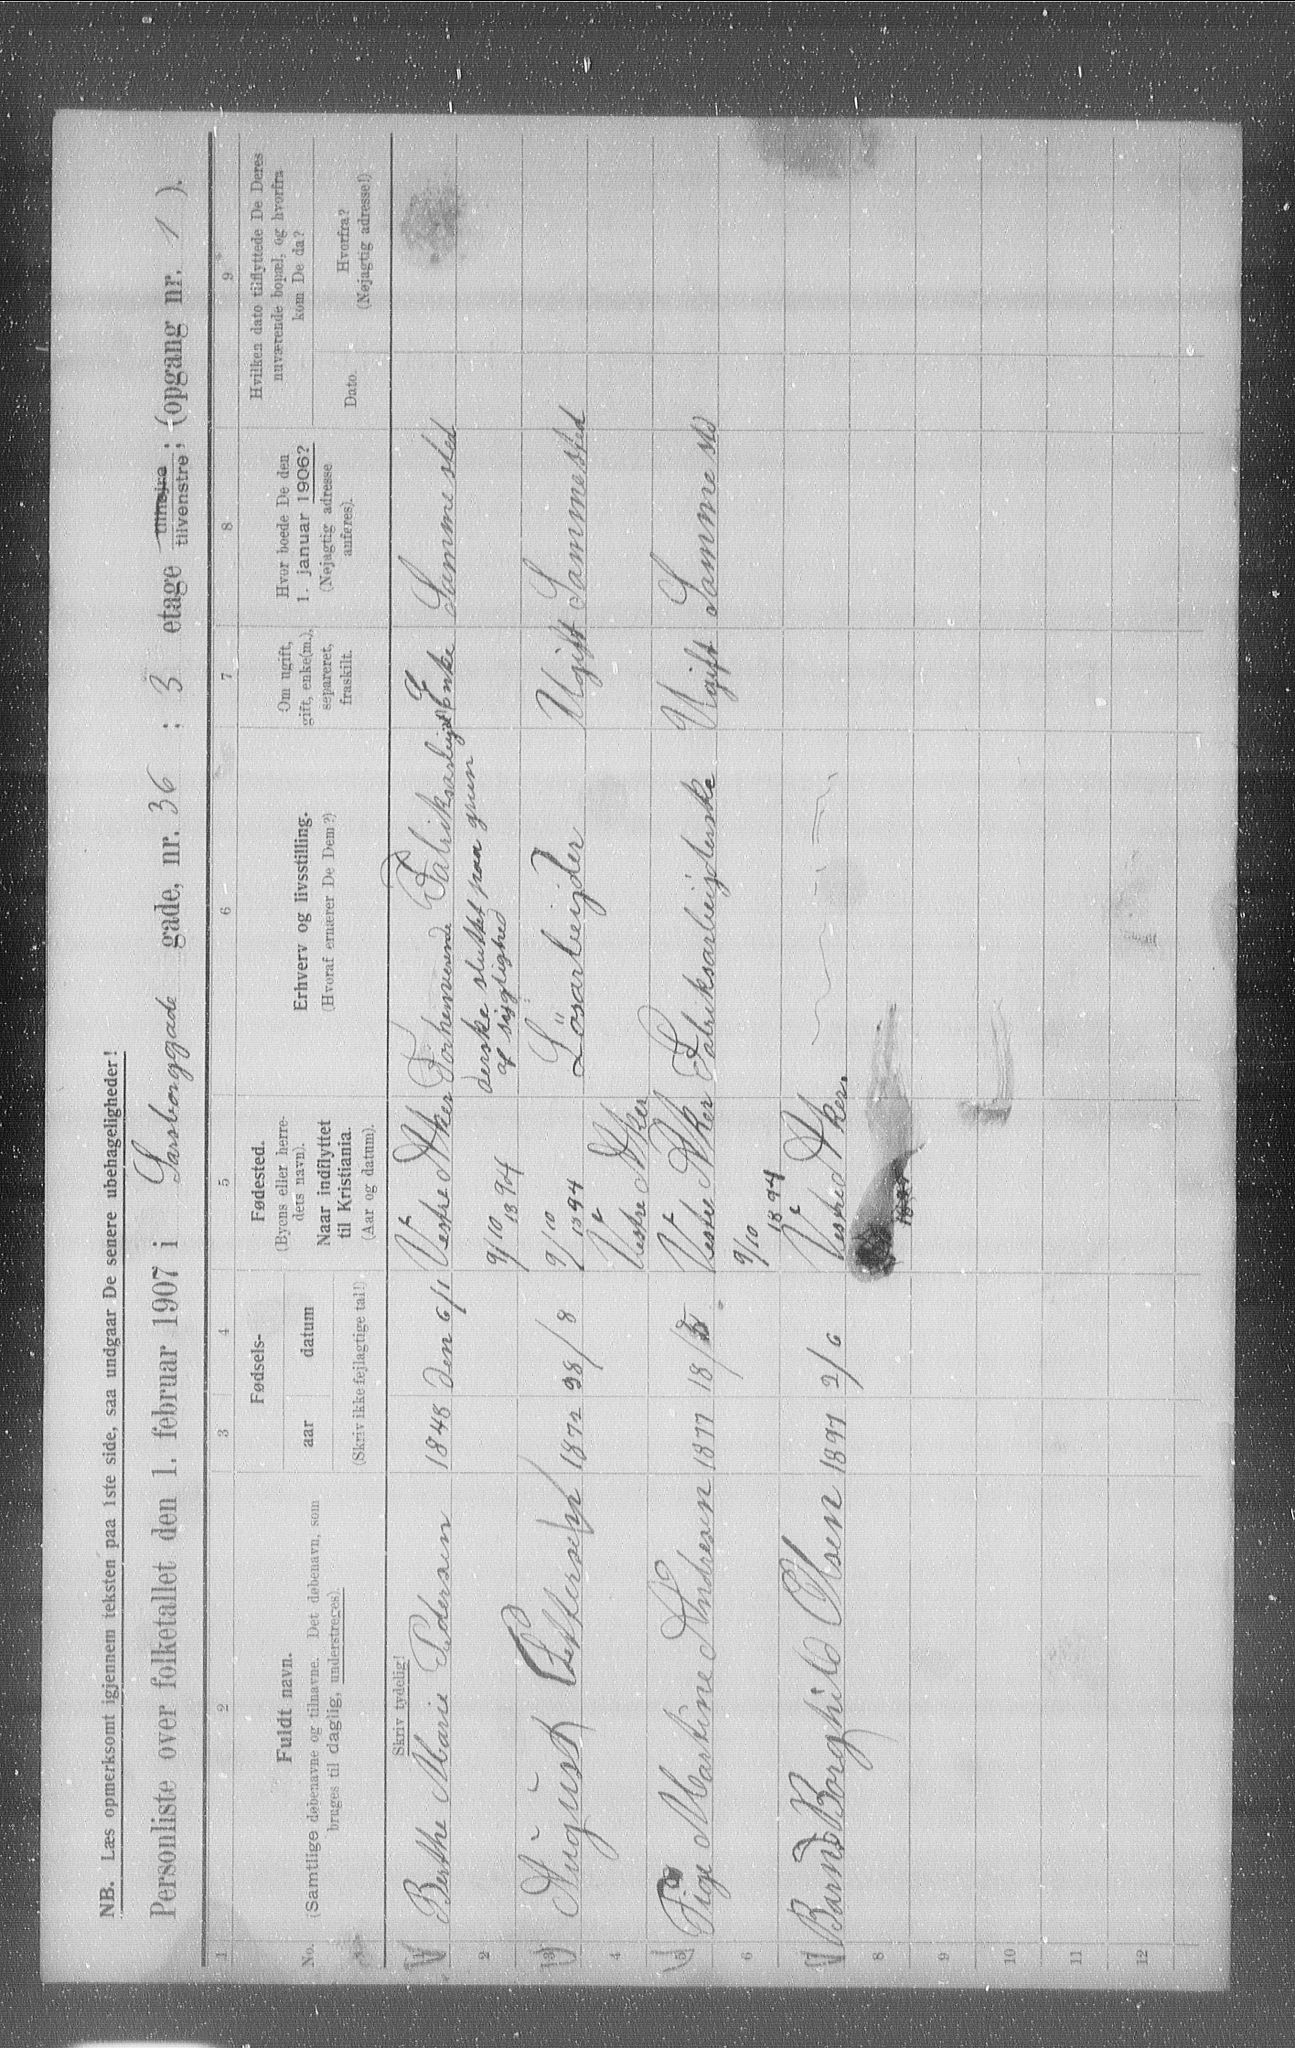 NB. Læs opmerksomt igjennem teksten paa 1ste side, saa undgaar De senere ubehageligheder!
Personliste over folketallet den 1. februar 1907 i Sarsborggade gade, nr. 36 : 3 etage tilhøjre tilvenstre ; (opgang nr. 1 ).
1 2 3 4 5 6 7 8 9
No.
Fuldt navn.
(Samtlige døbenavne og tilnavne. Det døbenavn, som
bruges til daglig, understreges).
Fødsels-
aar datum
(Skriv ikke fejlagtige tal!)
Fødested.
(Byens eller herre-
dets navn).
Naar indflyttet
til Kristiania.
(Aar og datum).
Erhverv og livsstilling.
(Hvoraf ernærer De Dem?)
Om ugift,
gift, enke(m.),
separeret,
fraskilt.
Hvor boede De den
1. januar 1906?
(Nøjagtig adresse
anføres).
Hvilken dato tilflyttede De Deres
nuværende bopæl, og hvorfra
kom De da?
Dato.
Hvorfra?
(Nøjagtig adresse!)
Skriv tydelig!
1 Berthe Marie Pedersen 1848 den 6/1 Vestre Aker Forhenverende Fabriksarbeij Enke Samme sted
2 9/10 1894 derske sluttet paa grun
af syglighed
3 August Pettersen 1872 28/8 9/10 1894 Lösarbeijder Ugift Samme sted
4 Vestre Aker
5 Pige Martine Andresen 1877 18/5 Vestre Aker Fabriksarbeijderske Ugift Samme sted
6 9/10 1894
7 Barn Borghild Olsen 1897 2/6 Vestre Aker.
8
9
10
11
12